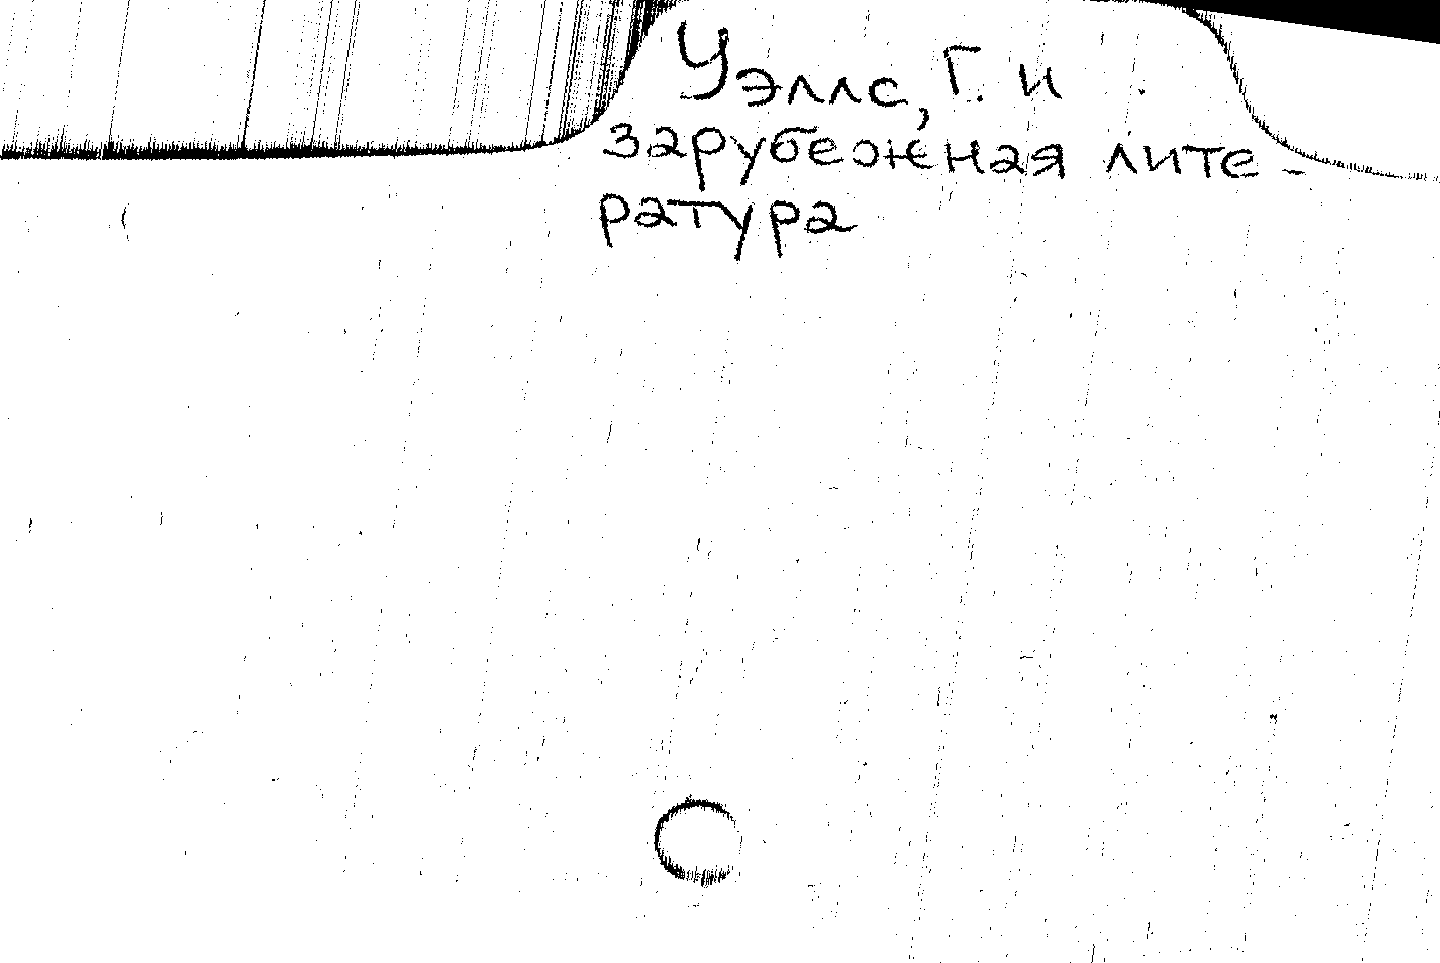 Уэллс, Г. и
зарубежная лите-
ратура